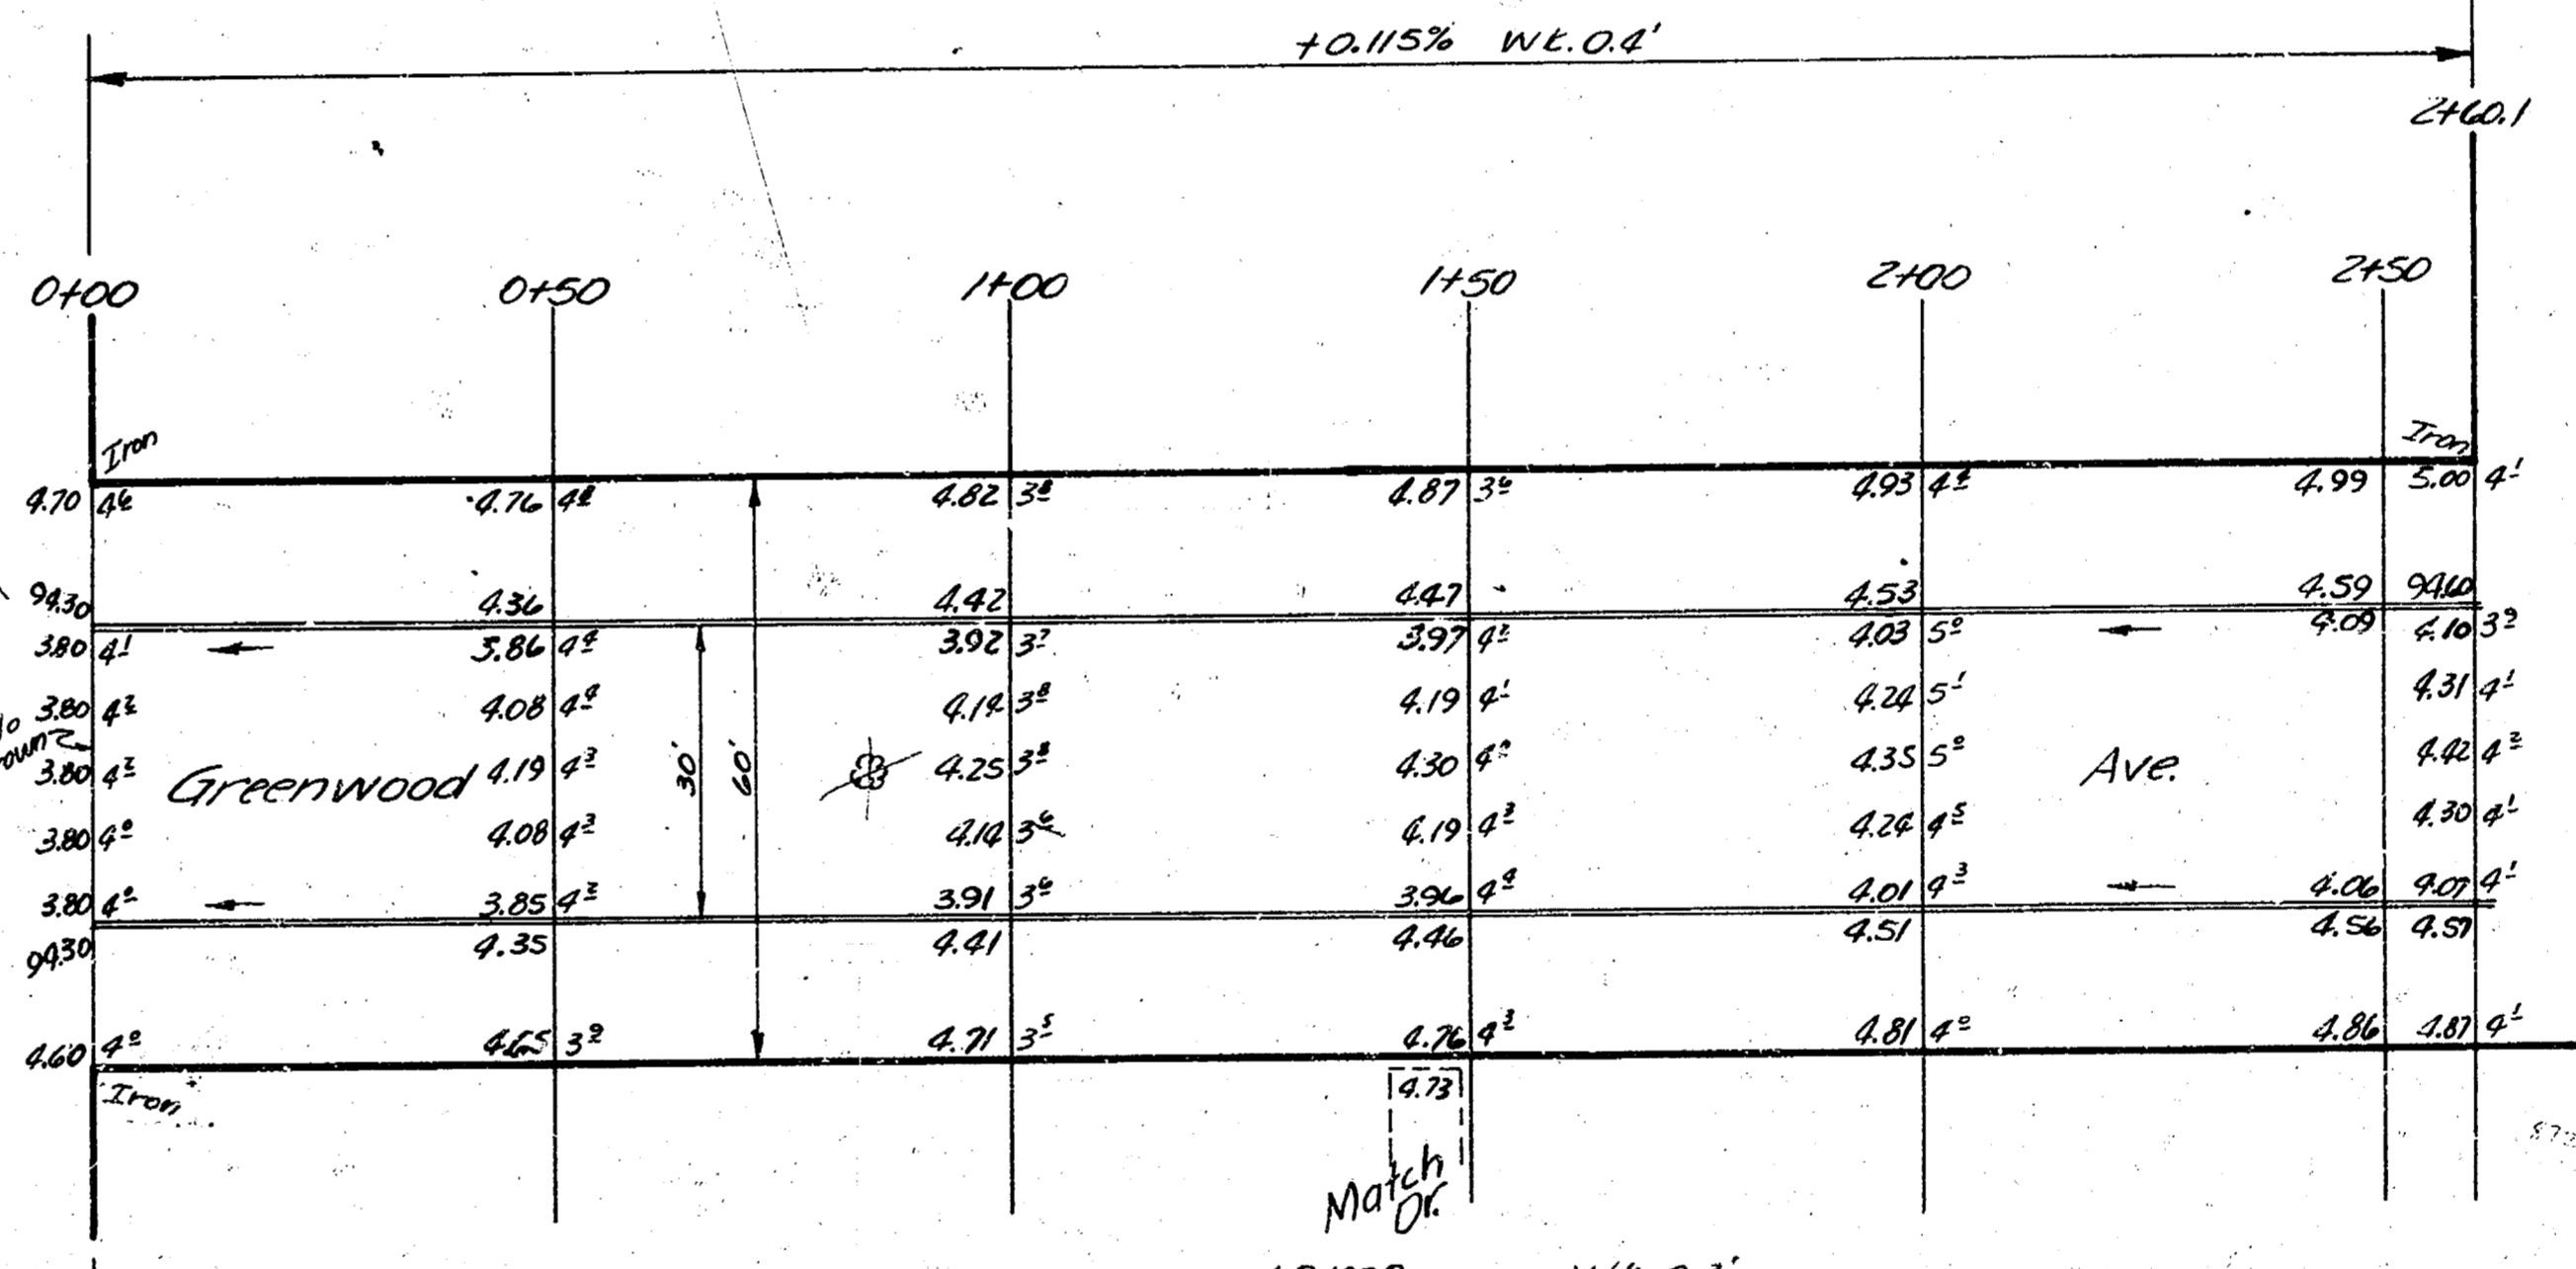 +0.115% Wk. 0.4'
2+60.1
0+00 0+50 1+00 1+50 2+00 2+50
Iron Iron
4.70 4.76 4.82 3⁸ 4.87 3⁶ 4.93 4.99 5.00 4¹
94.30 4.36 4.42 4.47 4.53 4.59 94.60
3.80 4¹ 3.86 4⁴ 3.92 3⁷ 3.97 4² 4.03 5⁰ 4.09 4.10 3⁹
3.80 4² 4.08 4⁴ 4.14 3⁸ 4.19 4¹ 4.24 5¹ 4.31 4¹
3.80 4² Greenwood 4.19 4³ 30' 60' 4.25 3⁸ 4.30 4.35 5⁰ Ave. 4.42 4²
3.80 4⁰ 4.08 4³ 4.14 3⁶ 4.19 4³ 4.24 4⁵ 4.30 4¹
3.80 4⁰ 3.85 4² 3.91 3⁶ 3.96 4⁴ 4.01 4³ 4.06 4.07 4¹
94.30 4.35 4.41 4.46 4.51 4.56 4.57
4.60 4⁰ 4.65 3⁹ 4.71 3⁵ 4.76 4³ 4.81 4⁰ 4.86 4.87 4¹
Iron 4.73
Match
Dr.